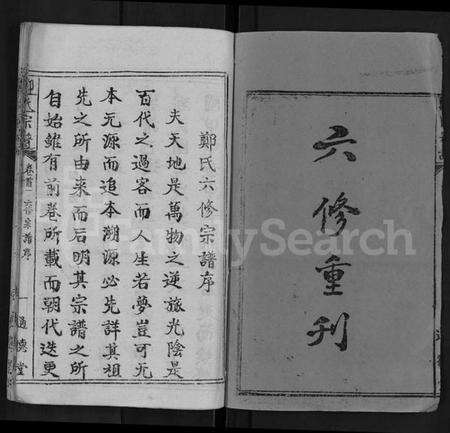 六修重刊
鄭氏六修宗譜序
夫天地是萬物之逆旅光陰是
百代之過客而人生若夢豈可无
本无源而追本溯源必先詳其祖
先之所由来而后明其宗譜之所
自始雖有前卷所載而朝代迭更
鄭氏宗譜
卷首
六修宗譜序
一
通德堂
FamilySearch